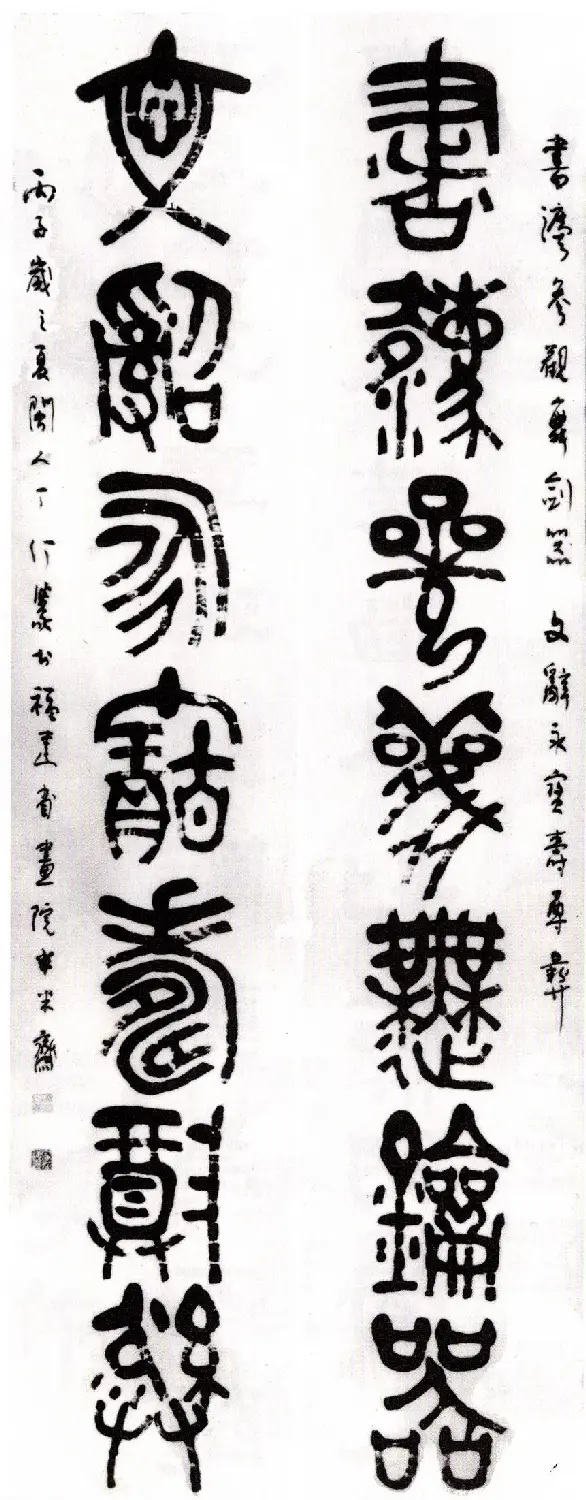 書灋參觀舞劍器 文辭永寶壽尊彝
書灋參觀舞劍器
文辭永寶壽尊彝
丙子歲之夏閩人丁仃篆书福建省畫院米齋